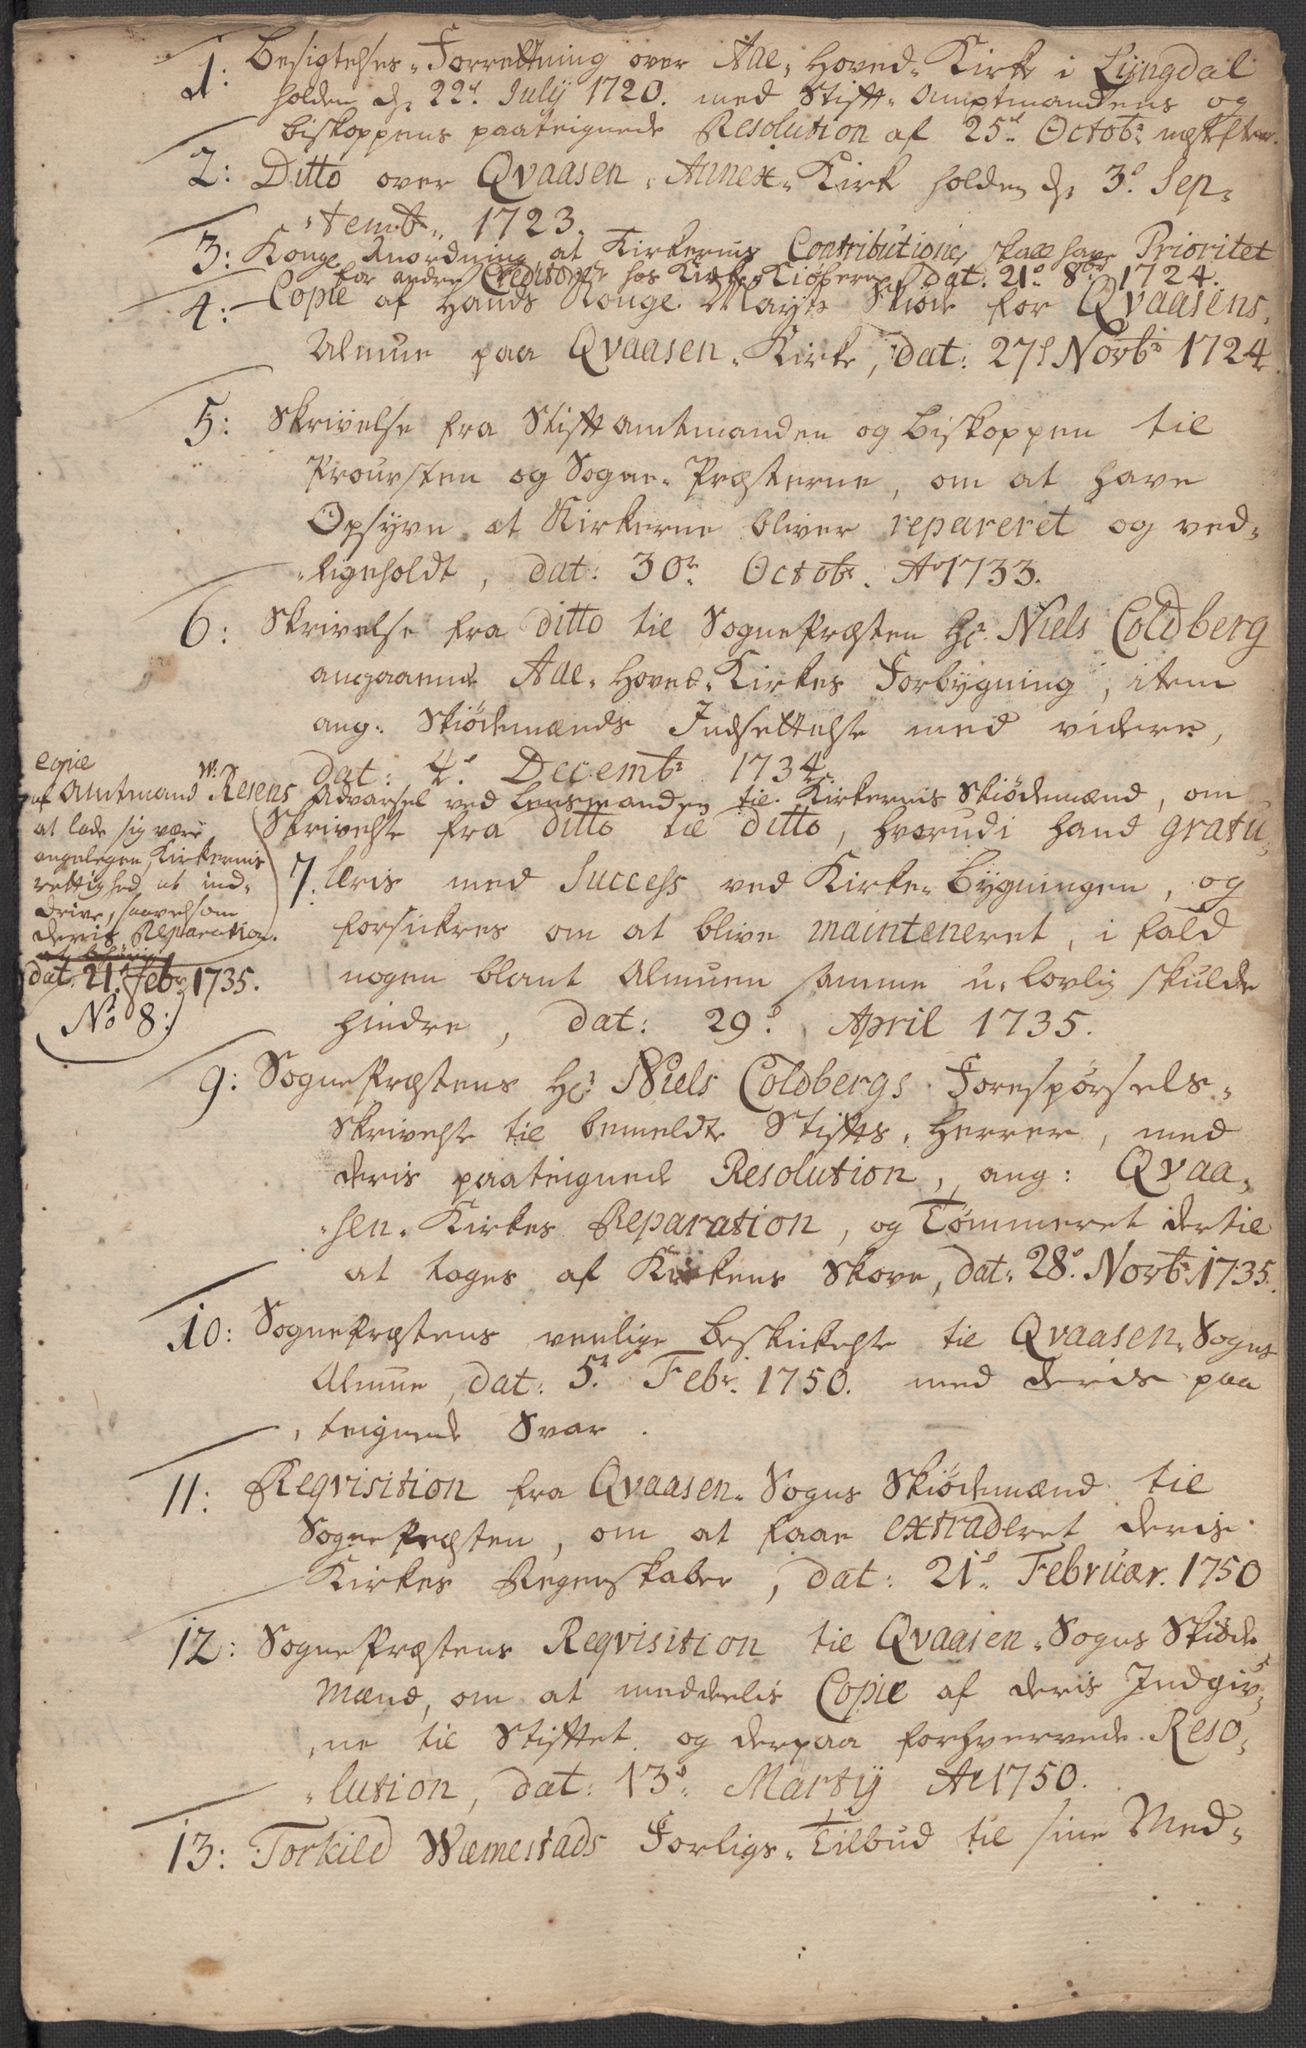 1: Besigtelses-Forretning over Aae-Hoved-Kirke i Lÿngdal
holden d. 22d July 1720. med Stift-Amptmandens og
Biskoppens paateignede Resolution af 25d Octobr næstefter.
2: Ditto over Qvaasen-Annex-Kirke holden d. 3d Sep-
-temb. 1723.
3: Konge. Anordning, at Kirkernis Contributioner skal have Prioritet
for andre Creditorer hos Kirke-Kiøberne, dat. 21d 8br 1724.
4: Copie af Hands Konge. Mayts Skiøde for Qvaasens
Almue paa Qvaasen-Kirke, dat: 27d Novbr 1724
5: Skrivelse fra Stiftamtmanden og Biskoppen til
Prousten og Sogne-Præsterne, om at have
Opsyn at Kirkerne bliver repareret og ved-
-ligeholdt, dat: 30te Octobr. Ao 1733.
6: Skrivelse fra ditto til SognePræsten Hr. Niels Coldberg
angaaende Aae-Hoved-Kirkes Forbygning, item
ang. Skiødemænds Indsettelse med videre,
dat: 4d Decembr 1734.
copie
af Amtmand W. Resens Advarsel ved Lensmanden til Kirkernis Skiødemænd, om
at lade sig være
angelegen Kirkernis
rettighed at ind-
drive, saavelsom
deris Reparation.
dat. 21d Febr 1735.
No 8:
7: Skrivelse fra ditto til ditto, hvorudi hand gratu-
leris med Success ved Kirke-Bygningen, og
forsikres om at blive mainteneret, i fald
nogen blant Almuen samme u-lovlig skulde
hindre, dat: 29d April 1735.
9: SognePræstens Hr. Niels Coldbergs Forespørsels-
Skrivelse til bemeldte Stifts-Herrer, med
deris paateignede Resolution, ang: Qvaa-
-sen-Kirkes Reparation, og Tømmeret dertil
at tages af Kirkens Skove, dat: 28d Novbr 1735.
10: SognePræstens venlige Beskikelse til Qvaasen-Sogns
Almue, dat: 5t Febr. 1750. med deris paa
-teignede Svar.
11: Reqvisition fra Qvaasen-Sogns Skiødemænd til
SognePræsten, om at faae extraderet deris
Kirkes Regenskaber, dat: 21d Februar. 1750
12: SognePræstens Reqvisition til Qvaasen-Sogns Skiøde
Mænd, om at meddelis Copie af deris Indgiv-
-ne til Stiftet og derpaa forhvervede Reso-
-lution, dat: 13d Martÿ Ao 1750.
13: Torkild Wæmestads Forligs-Tilbud til sine Med-